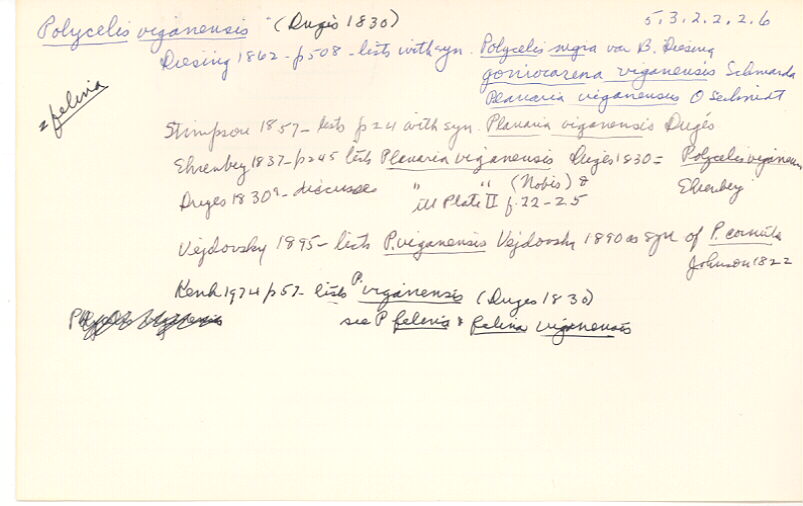 Polycelis viganensis (Dugès 1830) 5.3.2.2.2.6
Diesing 1862 - p508 - lists with syn. Polycelis nigra var B. Diesing
goniocarena viganensis Schmarda
Planaria viganensis O Schmidt
= felina
Stimpson 1857 - lists p24 with syn. Planaria viganensis Dugés
Ehrenbeg 1837 - p245 lists Planaria viganensis Dugès 1830 = Polycelis viganens
Duges 1830a - discusses " " (Nobis) & Ehrenbeg
ill Plate II f.22-25
Vejdovsky 1895 - lists P. viganensis Vejdovsky 1890 as syn of P. cornuta
Johnson 1822
Kenk 1974 p57 - lists P. viganensis (Duges 1830)
see P felina & felina viganensis